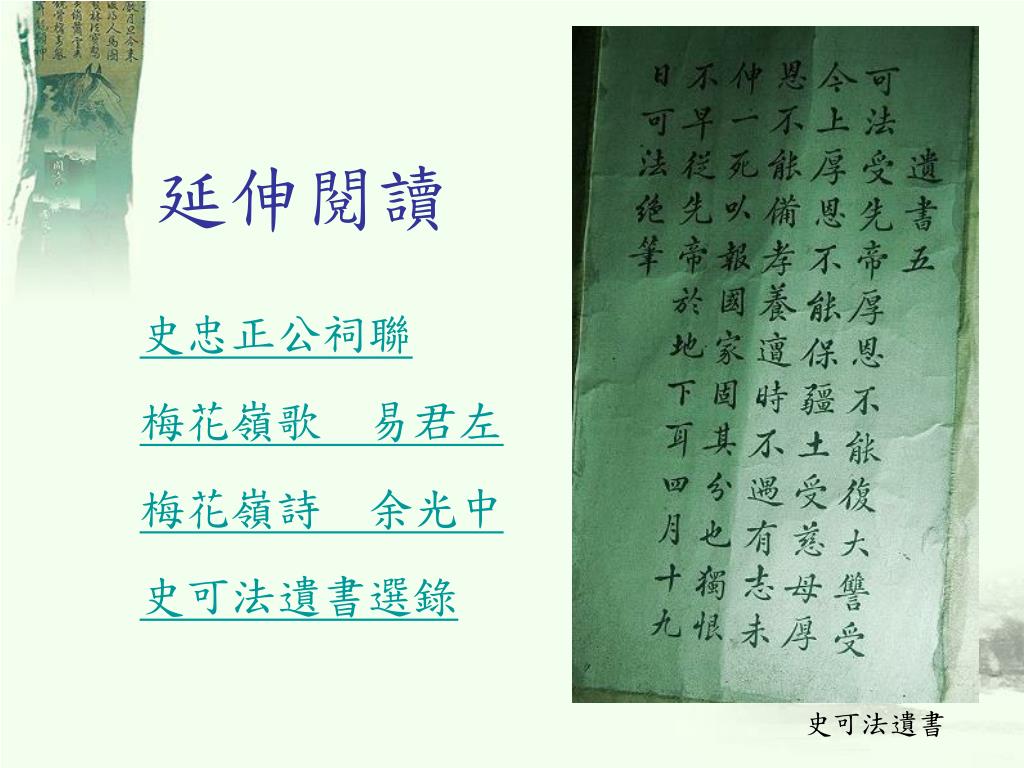 延伸閱讀
史忠正公祠聯
梅花嶺歌　易君左
梅花嶺詩　余光中
史可法遺書選錄
遺書五
可法受先帝厚恩不能復大讐受
今上厚恩不能保疆土受慈母厚
恩不能備孝養邅時不遇有志未
伸一死㕥報國家固其分也獨恨
不早從先帝於地下耳四月十九
日可法絕筆
史可法遺書